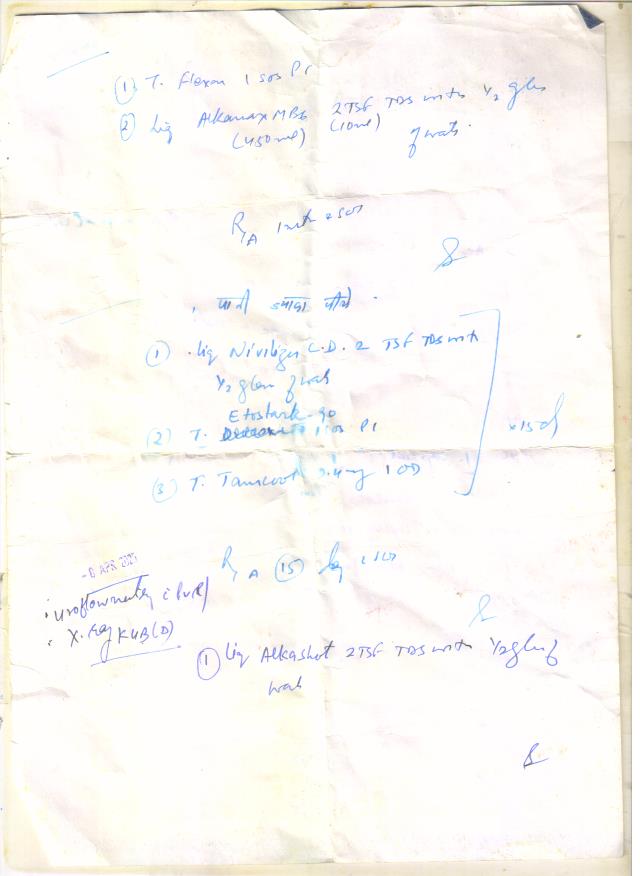 ① T. Flexon 1 sos P1
② Liq Alkamax MB6 2TSF TDS with 1/2 glass
(450ml) (10ml) of water.
R/A 1 mth
. पानी ज्यादा पीये .
① . Liq C.D. 2 TSF TDS with
1/2 glass of water
Etostark-90
② T. 1 sos P1
x 15 d
③ T. 0.4mg 1 OD
R/A ⑮ day
- 6 APR 2025
. Uroflowmetry c
. X-ray KUB (D)
① Liq Alkashot 2TSF TDS with 1/2 glass of
water